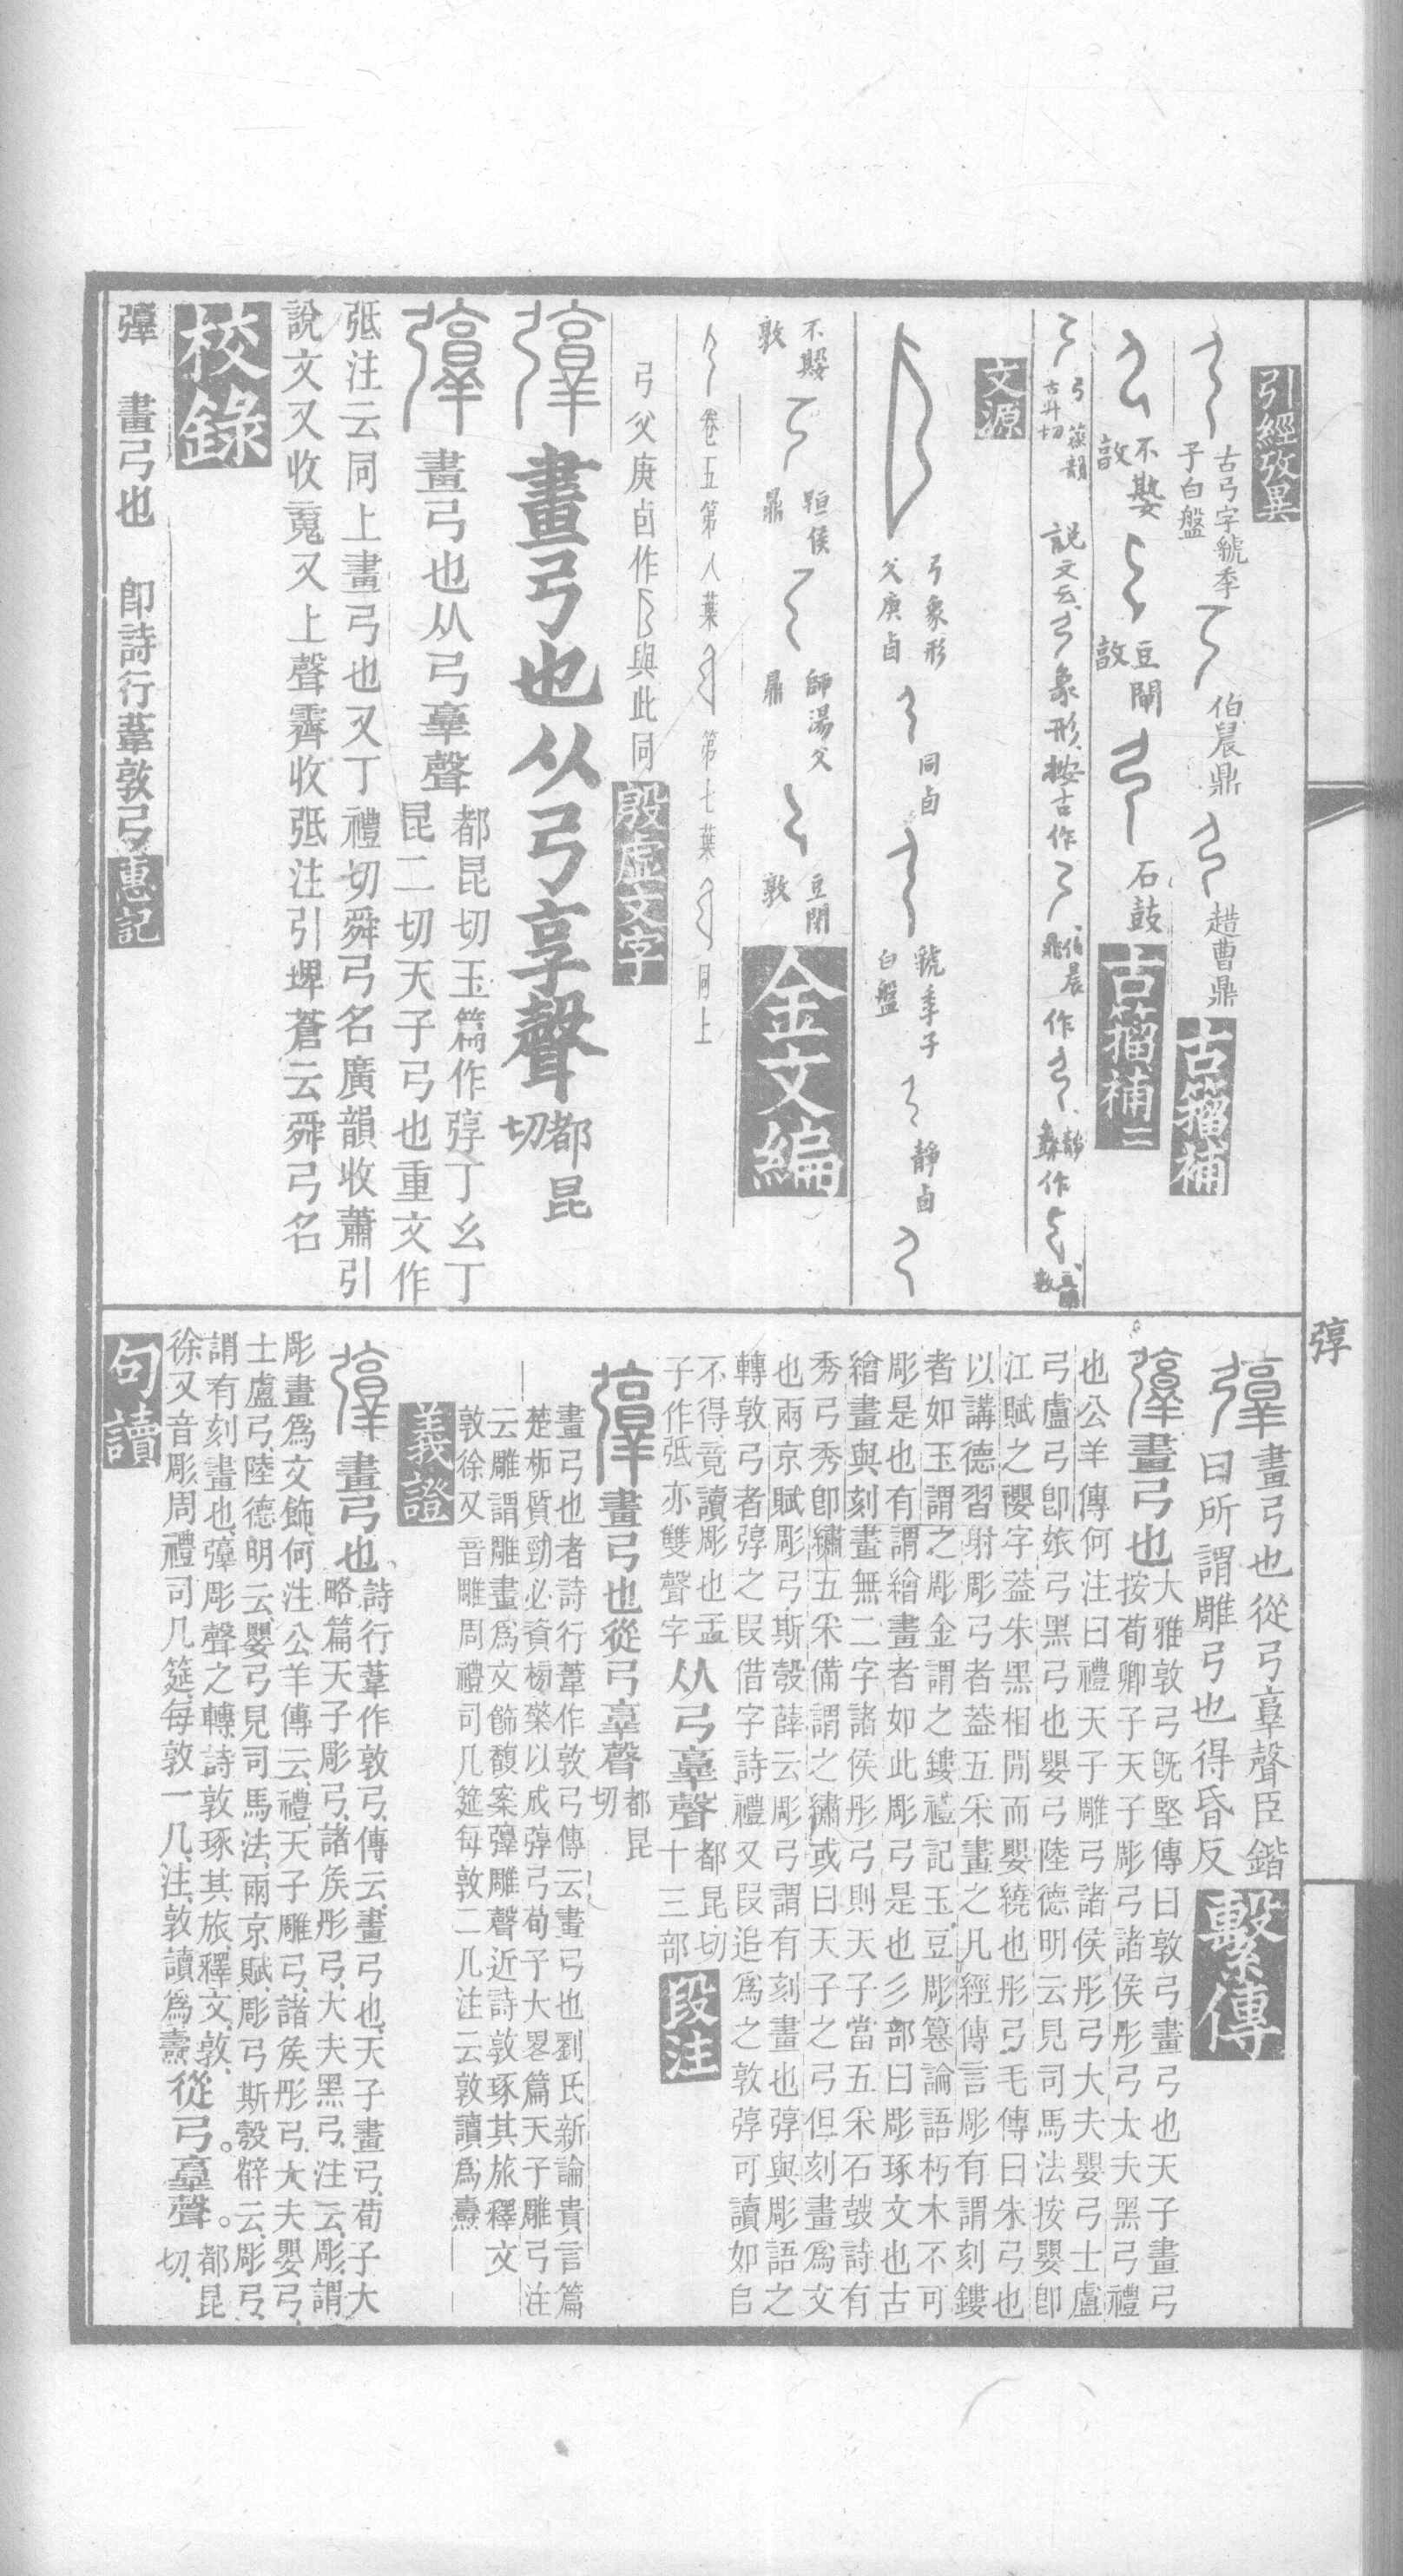 引經攷異
古弓字虢季
子白盤
伯晨鼎
趞曹鼎
古籀補
不㛸
敦
豆閉
敦
石鼓
古籀補二
弓 篆韻
古弁切
說文云弓象形按古作
伯晨
鼎
作
靜
彝
作
豆閉
敦
文源
弓象形
父庚卣
同卣
虢季子
白盤
靜卣
不㛸
敦
𧻚侯
鼎
師湯父
鼎
豆閉
敦
金文編
卷五第八葉
第七葉
同上
弓父庚卣作
與此同
殷虛文字
畫弓也从弓享聲
都昆
切
畫弓也从弓𦎫聲
都昆切玉篇作弴丁幺丁
昆二切天子弓也重文作
弤注云同上畫弓也又丁禮切舜弓名廣韻收蕭引
說文又收䰟又上聲霽收弤注引埤蒼云舜弓名
校錄
彈 畫弓也 即詩行葦敦弓
惠記
弴
畫弓也從弓𦎫聲臣鍇
曰所謂雕弓也得昏反
繫傳
畫弓也
大雅敦弓旣堅傳曰敦弓畫弓也天子畫弓
按荀卿子天子彫弓諸侯彤弓大夫黑弓禮
也公羊傳何注曰禮天子雕弓諸侯彤弓大夫嬰弓士盧
弓盧弓卽玈弓黑弓也嬰弓陸德明云見司馬法按嬰卽
江賦之㼆字葢朱黑相閒而嬰繞也彤弓毛傳曰朱弓也
以講德習射彫弓者葢五采畫之凡經傳言彫有謂刻鏤
者如玉謂之彫金謂之鏤禮記玉豆彫篹論語朽木不可
彫是也有謂繪畫者如此彫弓是也彡部曰彫琢文也古
繪畫與刻畫無二字諸侯彤弓則天子當五采石鼓詩有
秀弓秀卽繡五采備謂之繡或曰天子之弓但刻畫爲文
也兩京賦彫弓斯彀薛云彫弓謂有刻畫也弴與彫語之
轉敦弓者弴之叚借字詩禮又叚追爲之敦弴可讀如自
不得竟讀彫也孟
子作弤亦雙聲字
从弓𦎫聲
都昆切
十三部
段注
畫弓也從弓𦎫聲
都昆
切
畫弓也者詩行葦作敦弓傳云畫弓也劉氏新論貴言篇
楚柘質勁必資榜檠以成弴弓荀子大畧篇天子雕弓注
云雕謂雕畫爲文飾馥案弴雕聲近詩敦琢其旅釋文
敦徐又音雕周禮司几筵每敦二几注云敦讀爲燾
義證
畫弓也、
詩行葦作敦弓、傳云、畫弓也、天子畫弓、荀子大
略篇天子彫弓、諸矦彤弓、大夫黑弓、注云、彫、謂
彫畫爲文飾、何注公羊傳云、禮、天子雕弓、諸矦彤弓、大夫嬰弓、
士盧弓、陸德明云、嬰弓見司馬法、兩京賦、彫弓斯彀、薛云、彫弓、
謂有刻畫也、弴彫聲之轉、詩敦琢其旅、釋文、敦、
徐又音彫周禮司几筵、每敦一几、注、敦讀爲燾、
從弓。𦎫聲。
都昆
切、
句讀